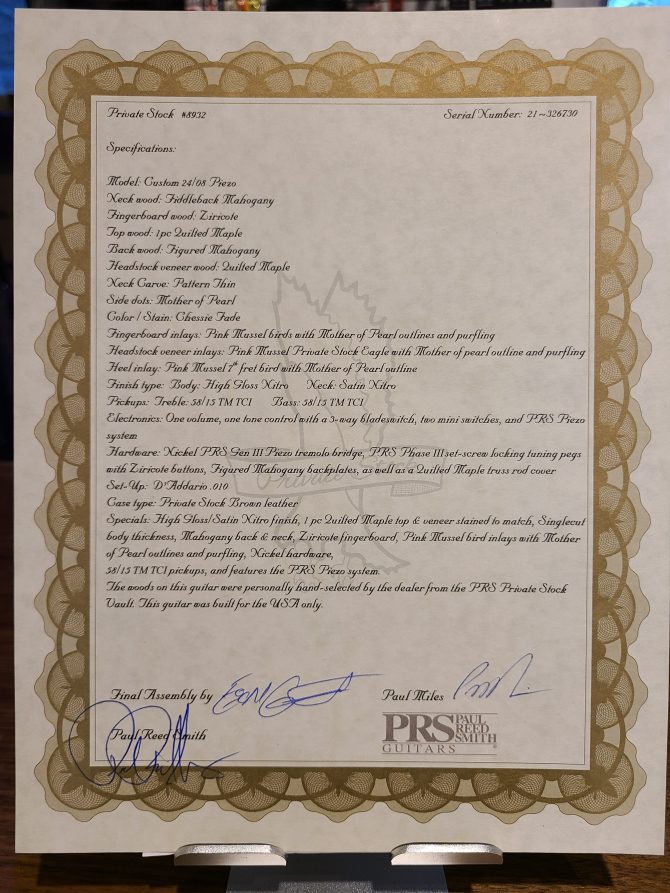 Private Stock #8932 Serial Number: 21~326730
Specifications:
Model: Custom 24/08 Piezo
Neck wood: Fiddleback Mahogany
Fingerboard wood: Ziricote
Top wood: 1pc Quilted Maple
Back wood: Figured Mahogany
Headstock veneer wood: Quilted Maple
Neck Carve: Pattern Thin
Side dots: Mother of Pearl
Color / Stain: Chessie Fade
Fingerboard inlays: Pink Mussel birds with Mother of Pearl outlines and purfling
Headstock veneer inlays: Pink Mussel Private Stock Eagle with Mother of pearl outline and purfling
Heel inlay: Pink Mussel 7th fret bird with Mother of Pearl outline
Finish type: Body: High Gloss Nitro Neck: Satin Nitro
Pickups: Treble: 58/15 TM TCI Bass: 58/15 TM TCI
Electronics: One volume, one tone control with a 3-way bladeswitch, two mini switches, and PRS Piezo
system
Hardware: Nickel PRS Gen III Piezo tremolo bridge, PRS Phase III set-screw locking tuning pegs
with Ziricote buttons, Figured Mahogany backplates, as well as a Quilted Maple truss rod cover
Set-Up: D'Addario .010
Case type: Private Stock Brown leather
Specials: High Gloss/Satin Nitro finish, 1 pc Quilted Maple top & veneer stained to match, Singlecut
body thickness, Mahogany back & neck, Ziricote fingerboard, Pink Mussel bird inlays with Mother
of Pearl outlines and purfling, Nickel hardware,
58/15 TM TCI pickups, and features the PRS Piezo system.
The woods on this guitar were personally hand-selected by the dealer from the PRS Private Stock
Vault. This guitar was built for the USA only.
Final Assembly by Paul Miles
Paul Reed Smith
PRS PAUL REED SMITH
GUITARS